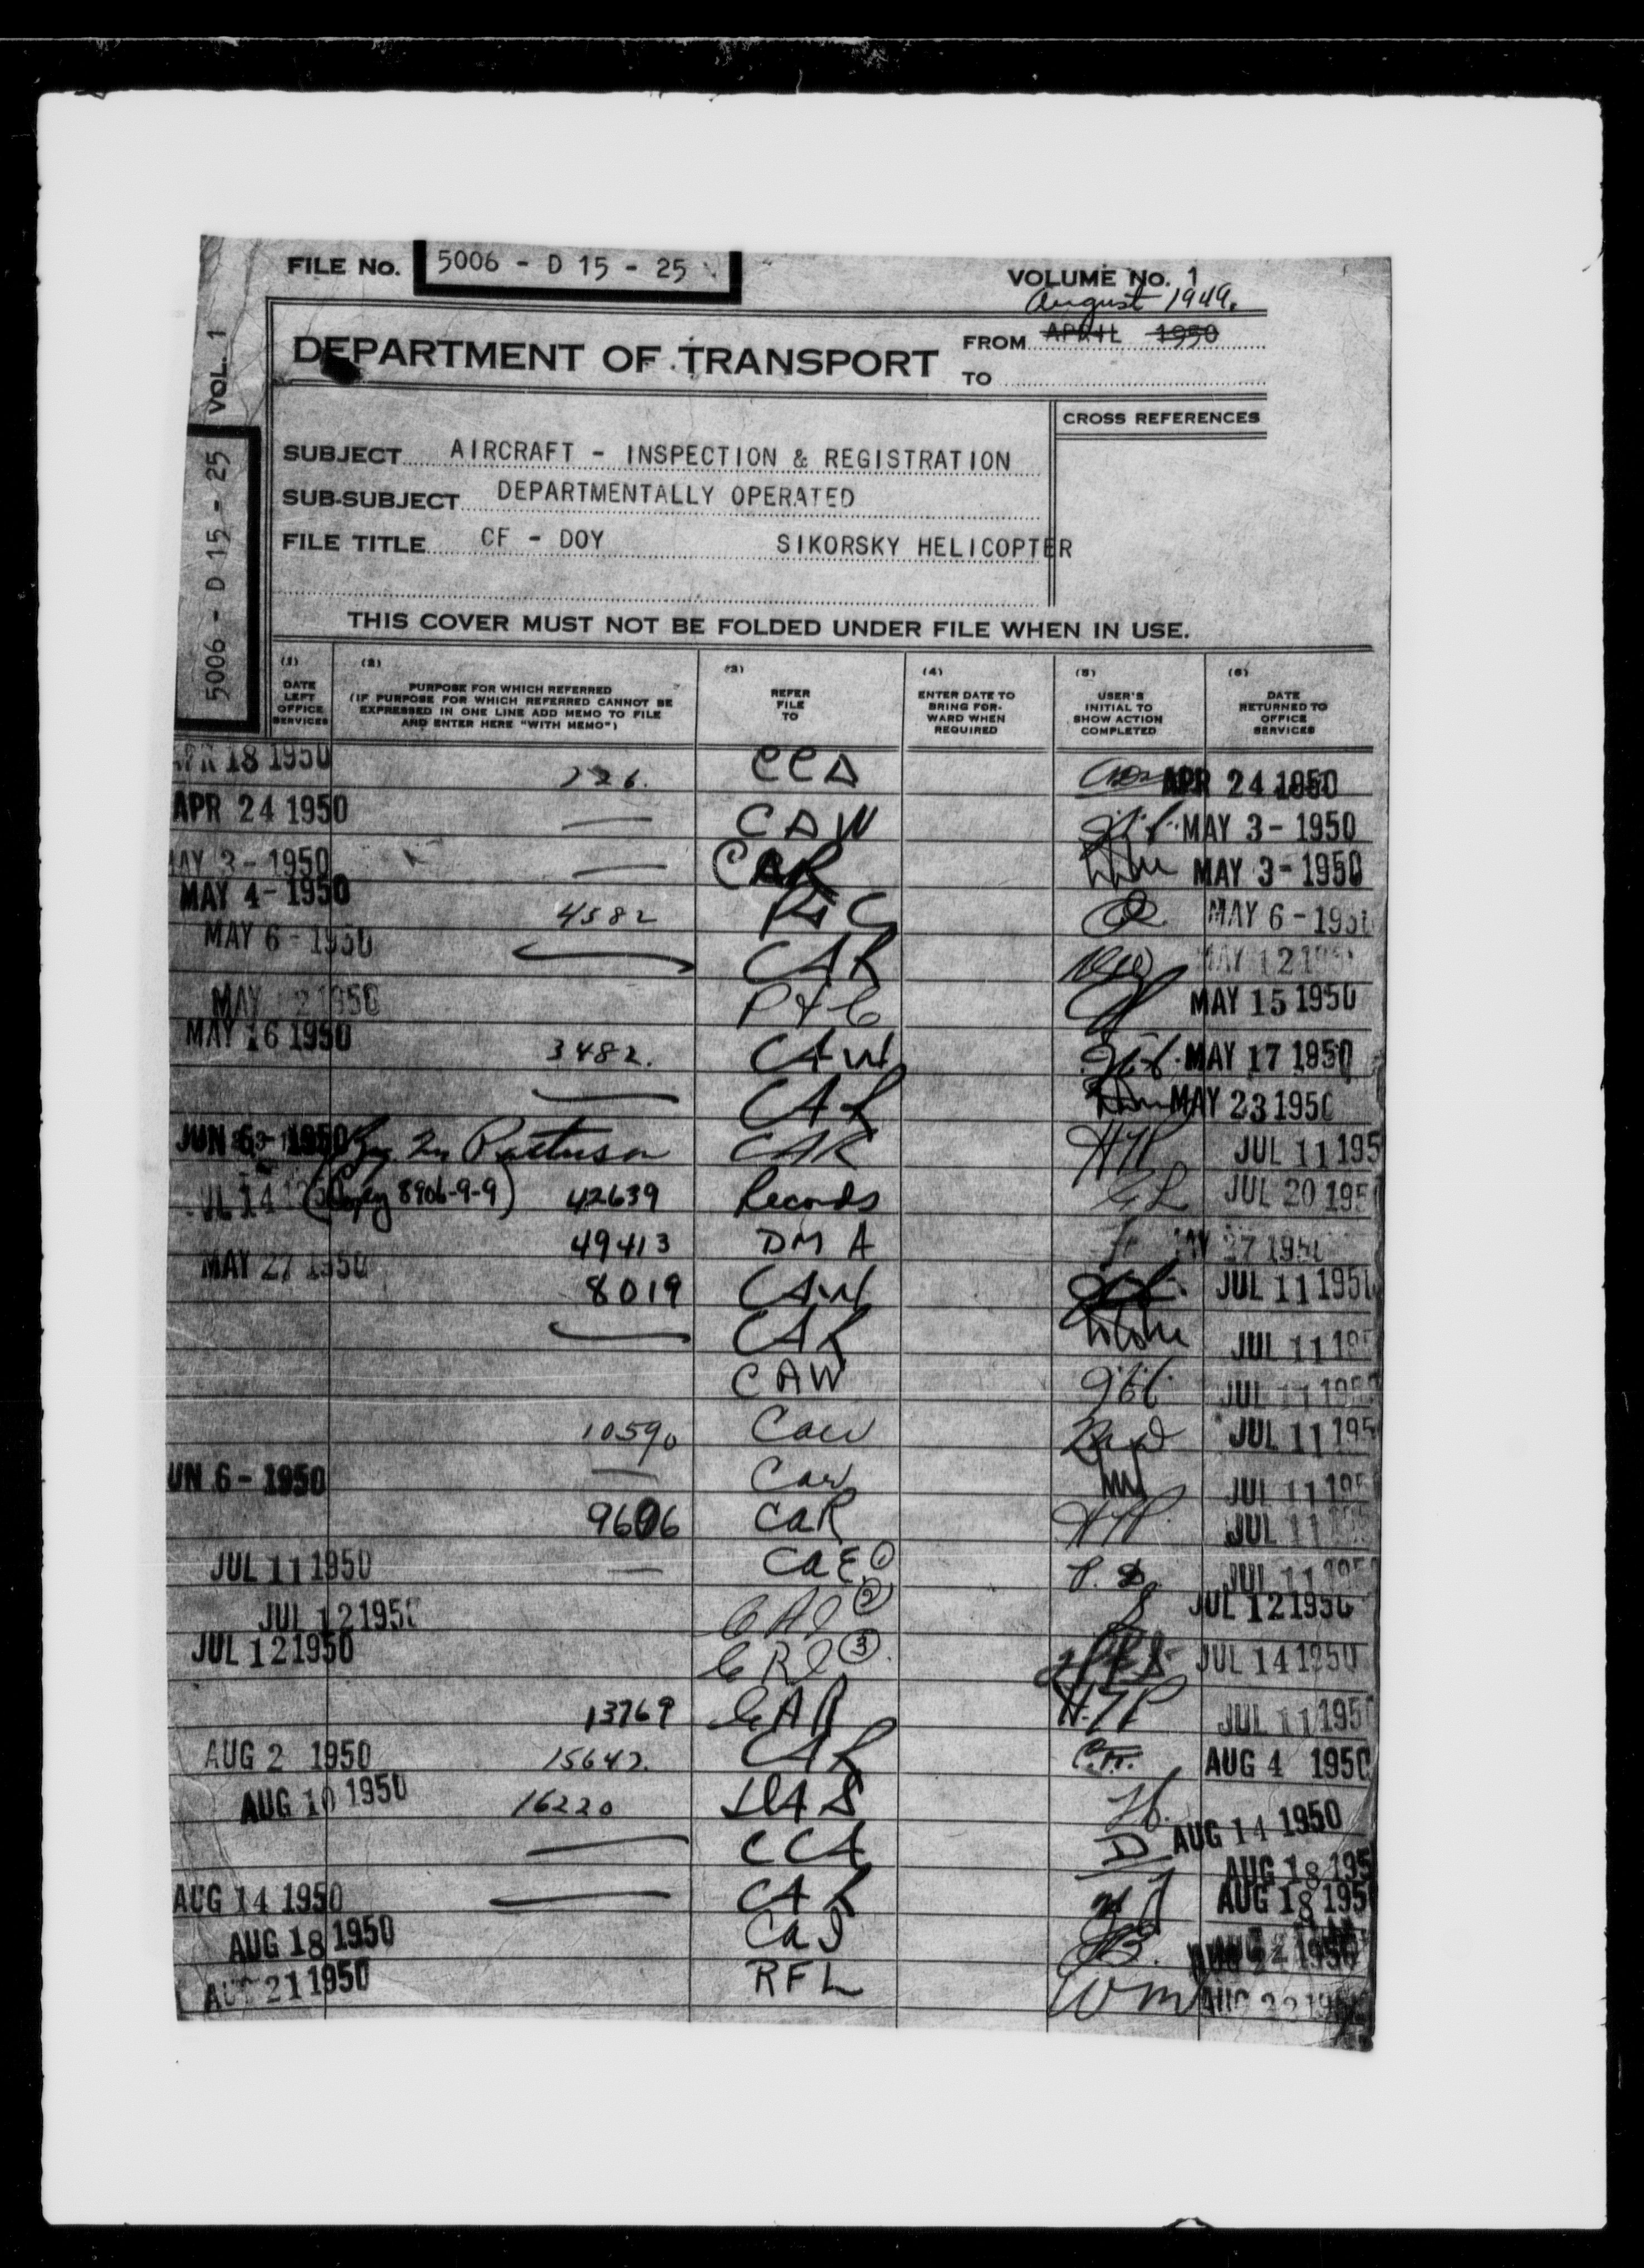 FILE No. 5006 - D 15 - 25
VOLUME No. 1
August 1949.
VOL. 1
5006 - D 15 - 25
DEPARTMENT OF TRANSPORT
FROM APRIL 1950
TO
CROSS REFERENCES
SUBJECT AIRCRAFT - INSPECTION & REGISTRATION
SUB-SUBJECT DEPARTMENTALLY OPERATED
FILE TITLE CF - DOY SIKORSKY HELICOPTER
THIS COVER MUST NOT BE FOLDED UNDER FILE WHEN IN USE.
(1) DATE LEFT OFFICE SERVICES
(2) PURPOSE FOR WHICH REFERRED (IF PURPOSE FOR WHICH REFERRED CANNOT BE EXPRESSED IN ONE LINE ADD MEMO TO FILE AND ENTER HERE "WITH MEMO")
(3) REFER FILE TO
(4) ENTER DATE TO BRING FOR-WARD WHEN REQUIRED
(5) USER'S INITIAL TO SHOW ACTION COMPLETED
(6) DATE RETURNED TO OFFICE SERVICES
APR 18 1950 226. CCA APR 24 1950
APR 24 1950 — CAW MAY 3 - 1950
MAY 3 - 1950 — CAR MAY 3 - 1950
MAY 4 - 1950 4582 P&C MAY 6 - 1950
MAY 6 - 1950 CAR MAY 12 1950
MAY 12 1950 P&C MAY 15 1950
MAY 16 1950 3482. CAW MAY 17 1950
CAR MAY 23 1950
JUN 6 - 1950 CAR HTP JUL 11 195
JL 14 (Copy 8906-9-9) 42639 Records JUL 20 195
49413 DMA 27 1950
MAY 27 1950 8019 CAW JUL 11 1950
CAR JUL 11 195
CAW JUL 11 1950
10590 Caw JUL 11 195
UN 6 - 1950 — Caw JUL 11 195
9606 CAR HTP. JUL 11
JUL 11 1950 — CAE ① JUL 11 195
JUL 12 1950 CAI ② JUL 12 1950
JUL 12 1950 ③ JUL 14 1950
13769 CAR HTP JUL 11 195
AUG 2 1950 15642. CAR AUG 4 1950
AUG 10 1950 16220 AUG 14 1950
— CCA AUG 18 195
AUG 14 1950 — CAR AUG 18 195
AUG 18 1950 CAI AUG 22 1950
AUG 21 1950 RFL Wm AUG 22 195